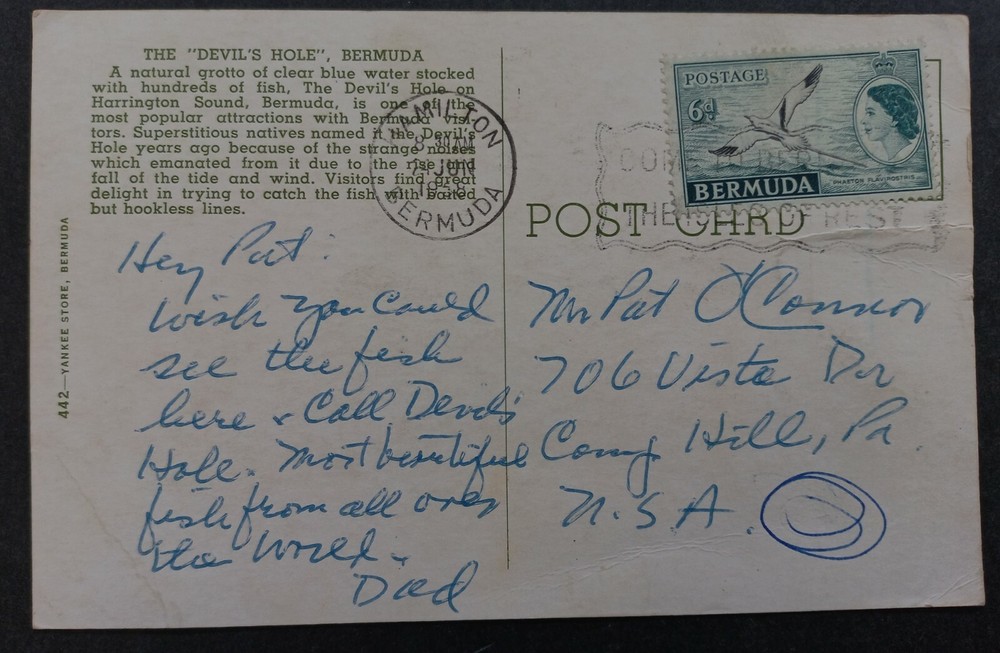 THE "DEVIL'S HOLE", BERMUDA
A natural grotto of clear blue water stocked
with hundreds of fish, The Devil's Hole on
Harrington Sound, Bermuda, is one of the
most popular attractions with Bermuda visi-
tors. Superstitious natives named it the Devil's
Hole years ago because of the strange noises
which emanated from it due to the rise and
fall of the tide and wind. Visitors find great
delight in trying to catch the fish with baited
but hookless lines.
442—YANKEE STORE, BERMUDA
HAMILTON
8 30AM
JUN
BERMUDA
POSTAGE
6d
PHAETON FLAVIROSTRIS
BERMUDA
COME TO BERMUDA
THE ISLES OF REST
POST CARD
Hey Pat:
Wish you could
see the fish
here & Call Devils
Hole. Most beautiful
fish from all over
the world.
Dad
Mr Pat O'Connor
706 Vista Dr
Camp Hill, Pa
U.S.A.